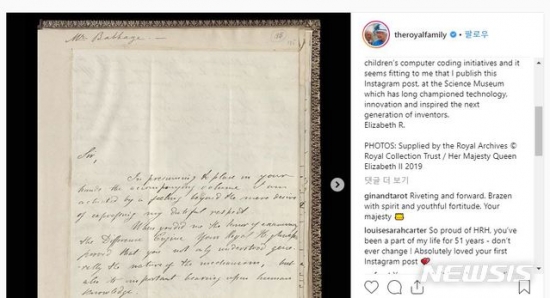 Mr. Babbage
Sir,
In presuming to place in your
hands the accompanying volume I am
actuated by a feeling beyond the mere desire
of expressing my dutiful respect.
When you did me the honor of examining
the Difference Engine Your Royal Highness
proved that you not only understood gene-
rally the nature of the mechanism, but
also its important bearing upon human
knowledge.
theroyalfamily • 팔로우
children's computer coding initiatives and it
seems fitting to me that I publish this
Instagram post, at the Science Museum
which has long championed technology,
innovation and inspired the next
generation of inventors.
Elizabeth R.
PHOTOS: Supplied by the Royal Archives ©
Royal Collection Trust / Her Majesty Queen
Elizabeth II 2019
댓글 더 보기
ginandtarot Riveting and forward. Brazen
with spirit and youthful fortitude. Your
majesty
louisesarahcarter So proud of HRH, you've
been a part of my life for 51 years - don't
ever change ! Absolutely loved your first
Instagram post
NEWSIS